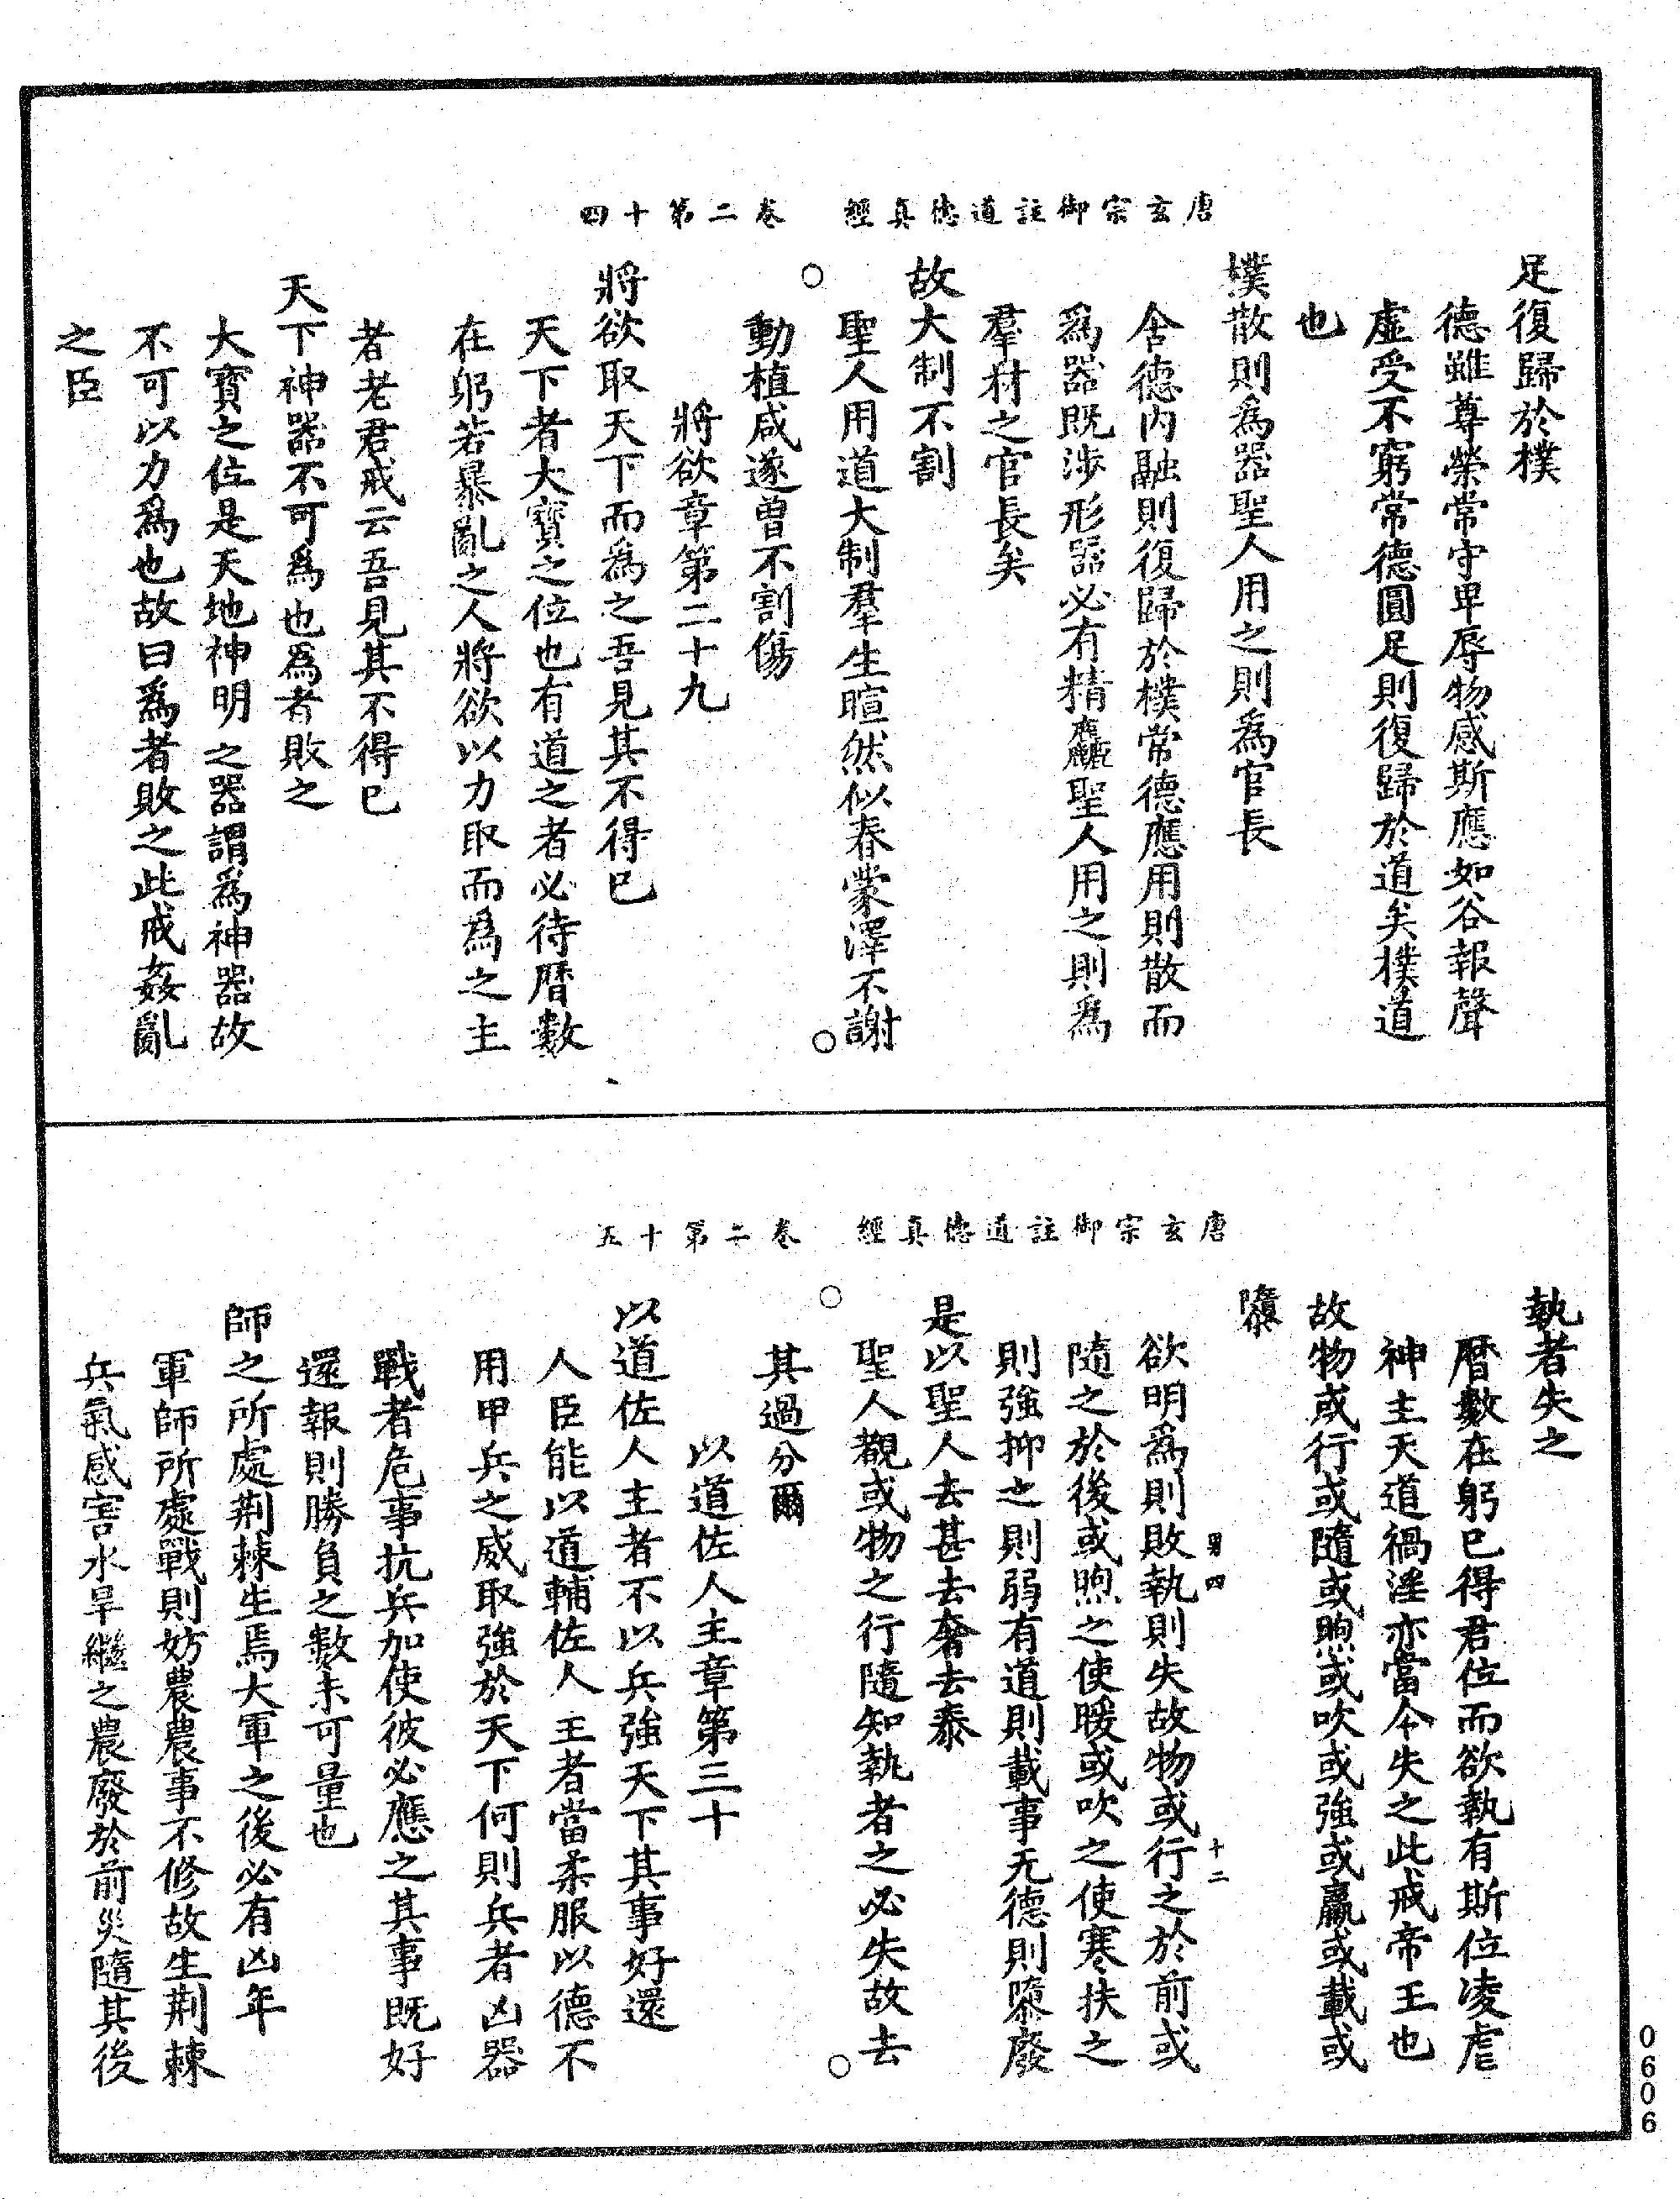 唐玄宗御註道德真經　卷二第十四
足復歸於樸
德雖尊榮常守卑辱物感斯應如谷報聲
虛受不窮常德圓足則復歸於道矣樸道
也
樸散則為器聖人用之則為官長
含德內融則復歸於樸常德應用則散而
為器既涉形器必有精麤聖人用之則為
羣材之官長矣
故大制不割
聖人用道大制羣生暄然似春蒙澤不謝
動植咸遂曾不割傷
將欲章第二十九
將欲取天下而為之吾見其不得已
天下者大寶之位也有道之者必待曆數
在躬若暴亂之人將欲以力取而為之主
者老君戒云吾見其不得已
天下神器不可為也為者敗之
大寶之位是天地神明之器謂為神器故
不可以力為也故曰為者敗之此戒姦亂
之臣
唐玄宗御註道德真經　卷二第十五
執者失之
曆數在躬已得君位而欲執有斯位凌虐
神主天道禍淫亦當令失之此戒帝王也
故物或行或隨或煦或吹或強或羸或載或
隳
欲明為則敗執則失故物或行之於前或
隨之於後或煦之使暖或吹之使寒扶之
則強抑之則弱有道則載事无德則隳廢
是以聖人去甚去奢去泰
聖人覩或物之行隨知執者之必失故去
其過分爾
以道佐人主章第三十
以道佐人主者不以兵強天下其事好還
人臣能以道輔佐人王者當柔服以德不
用甲兵之威取強於天下何則兵者凶器
戰者危事抗兵加使彼必應之其事既好
還報則勝負之數未可量也
師之所處荆棘生焉大軍之後必有凶年
軍師所處戰則妨農農事不修故生荆棘
兵氣感害水旱繼之農廢於前災隨其後
男四
十二
0606